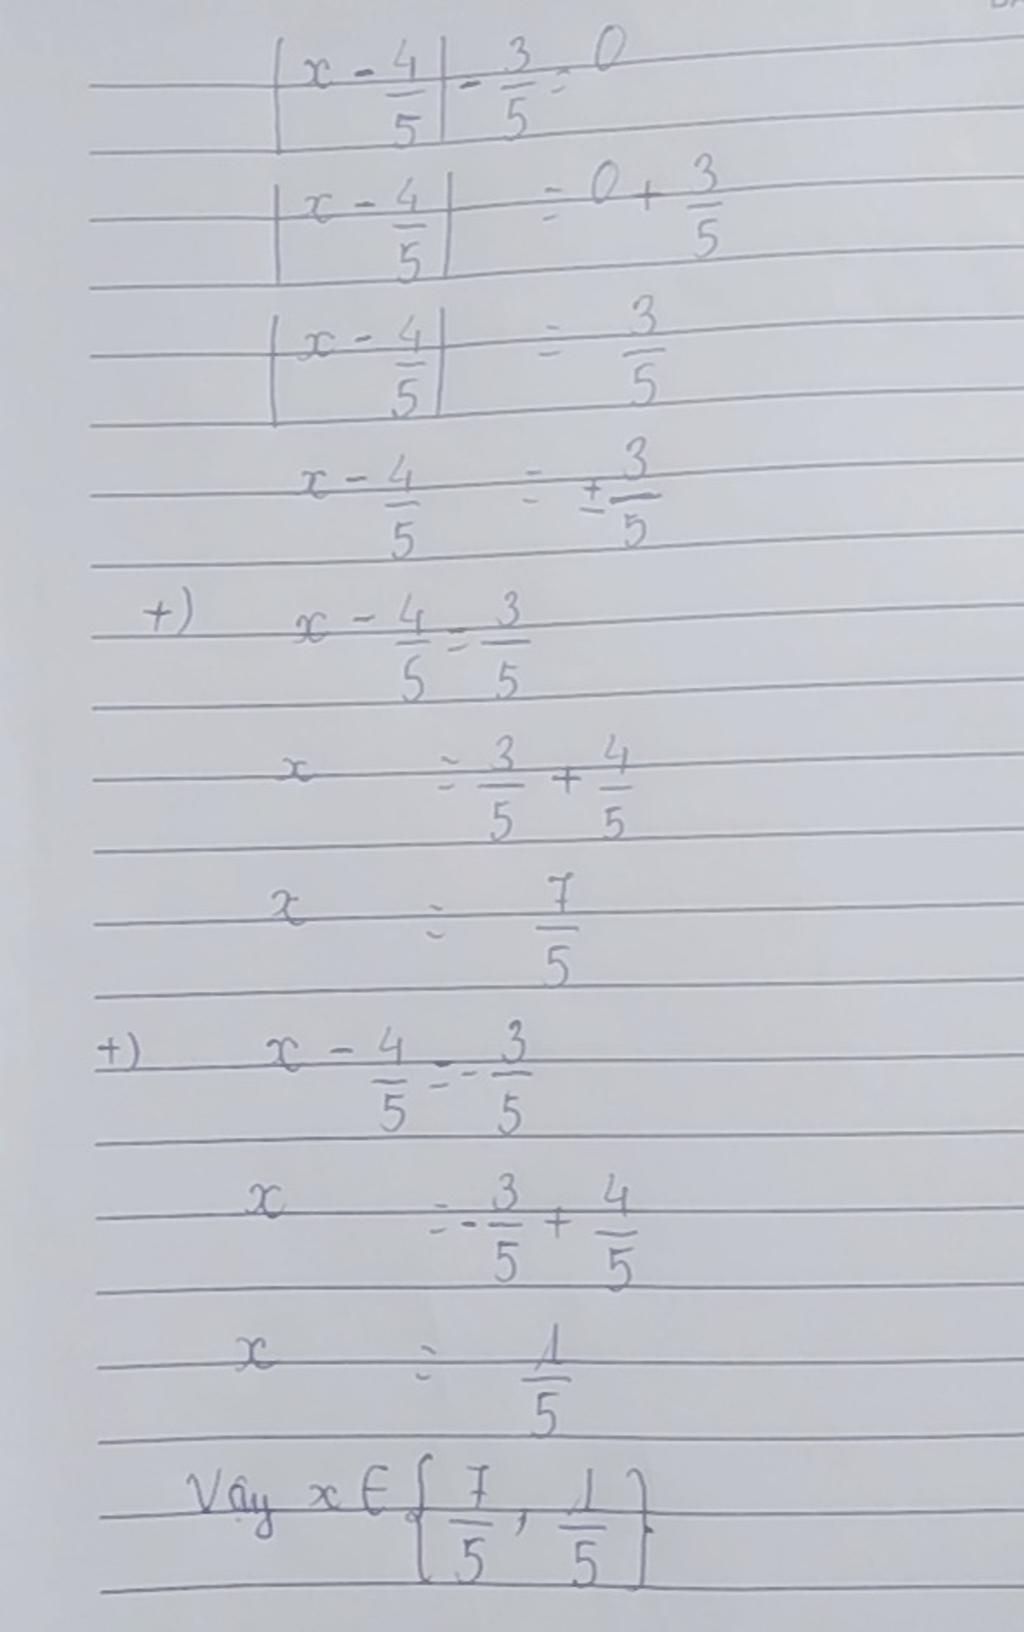 |x - 4/5| - 3/5 = 0
|x - 4/5| = 0 + 3/5
|x - 4/5| = 3/5
x - 4/5 = ± 3/5
+) x - 4/5 = 3/5
x = 3/5 + 4/5
x = 7/5
+) x - 4/5 = - 3/5
x = - 3/5 + 4/5
x = 1/5
Vậy x ∈ {7/5, 1/5}